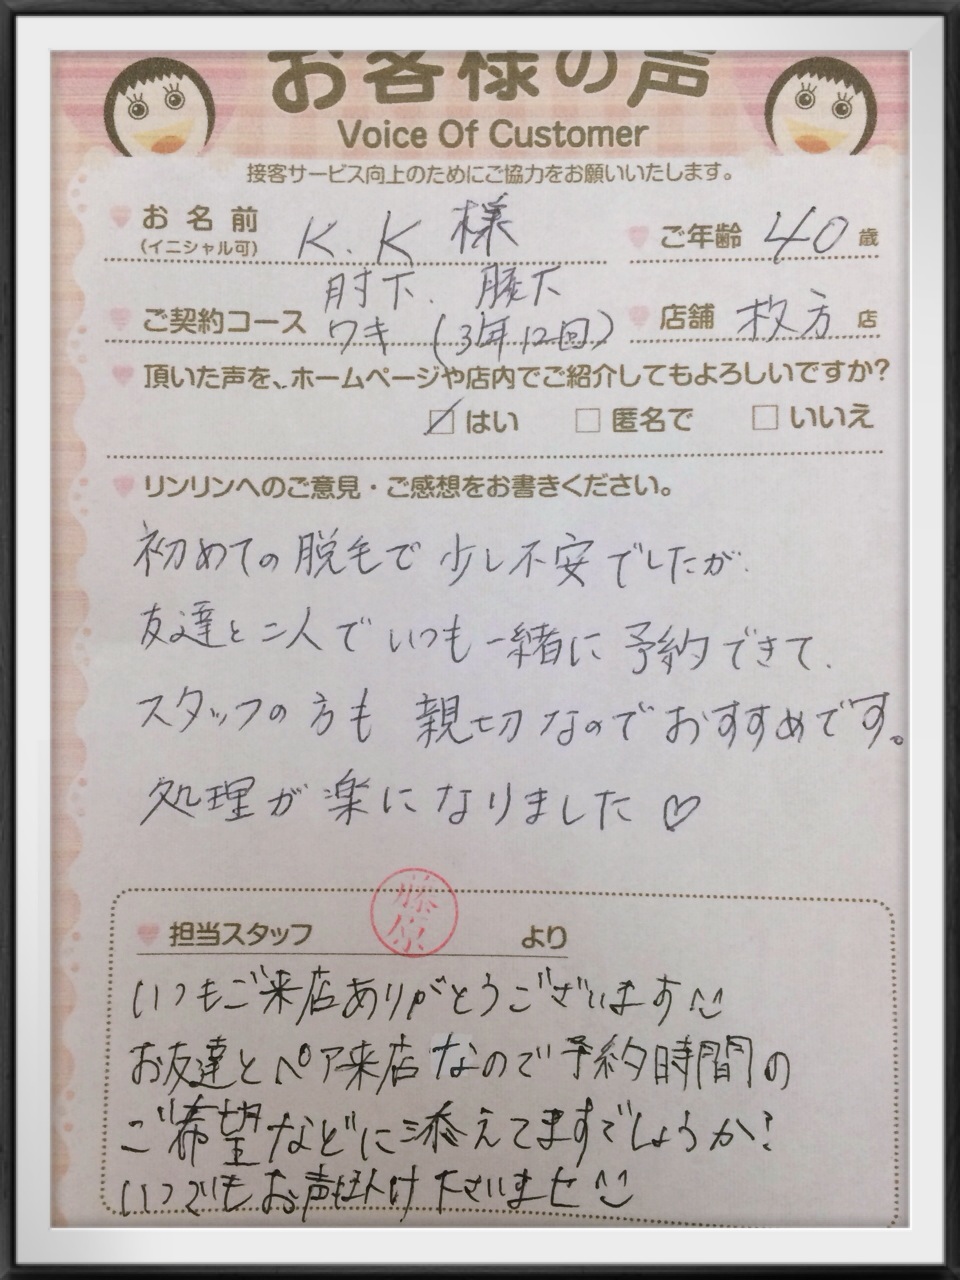 お客様の声
Voice Of Customer
接客サービス向上のためにご協力をお願いいたします。
お名前 K.K 様 ご年齢 40 歳
(イニシャル可)
肘下、膝下
ご契約コース ワキ (3年12回) 店舗 枚方 店
頂いた声を、ホームページや店内でご紹介してもよろしいですか?
☑はい □匿名で □いいえ
リンリンへのご意見・ご感想をお書きください。
初めての脱毛で少し不安でしたが、
友達と二人でいつも一緒に予約できて、
スタッフの方も親切なのでおすすめです。
処理が楽になりました♡
担当スタッフ 藤原 より
いつもご来店ありがとうございます
お友達とペア来店なので予約時間の
ご希望などに添えてますでしょうか?
いつでもお声掛け下さいませ